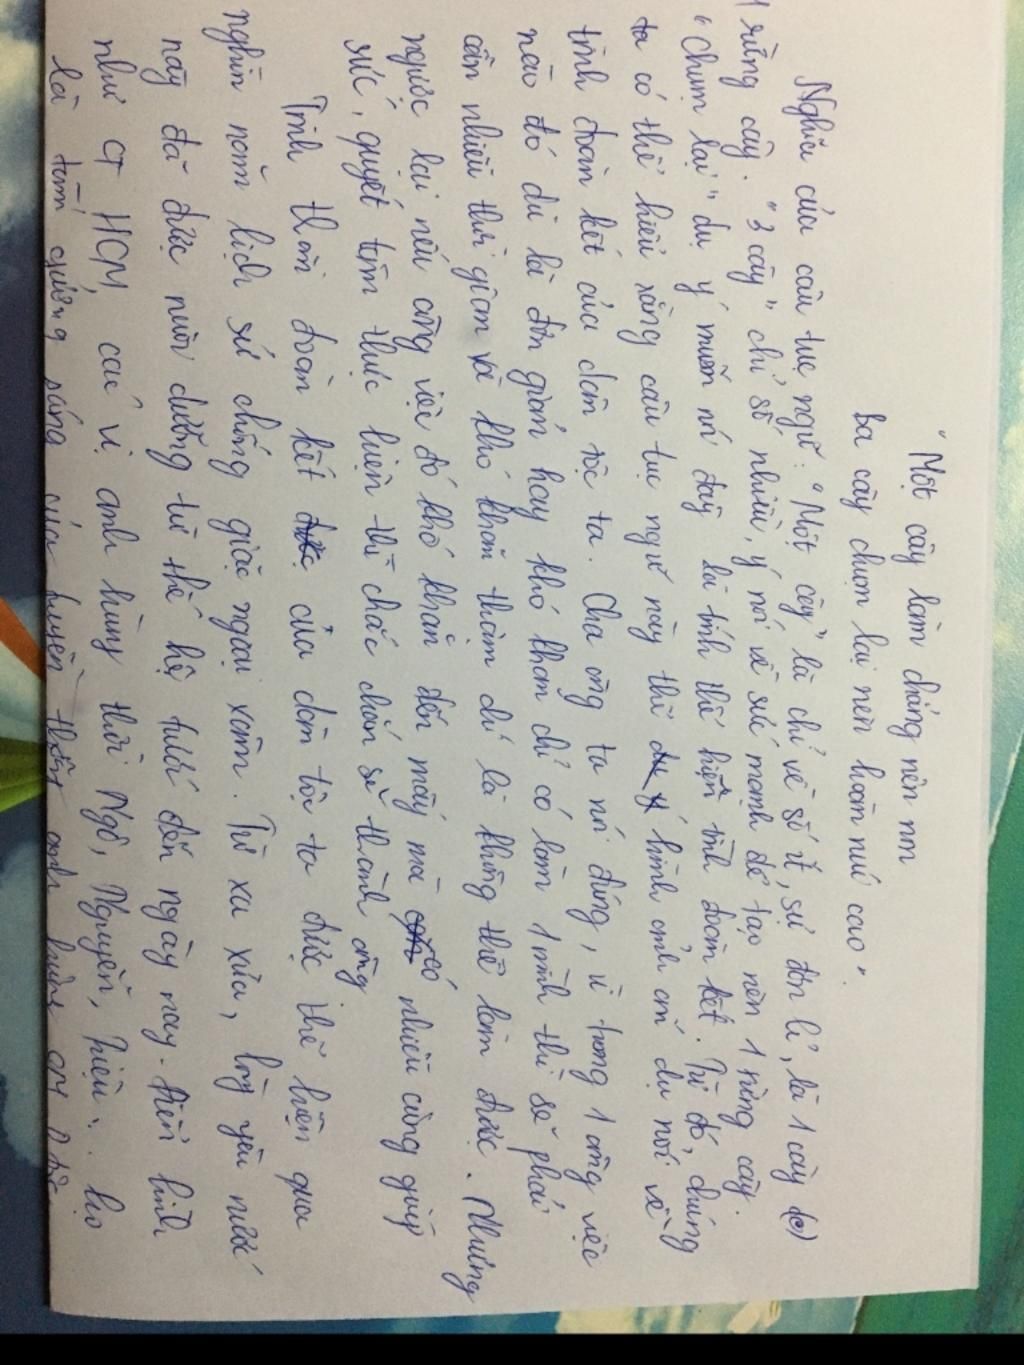 "Một cây làm chẳng nên non
Ba cây chụm lại nên hòn núi cao".
Nghĩa của câu tục ngữ: "Một cây" là chỉ về số ít, sự đơn lẻ, là 1 cây
1 rừng cây. "3 cây" chỉ số nhiều, ý nói về sức mạnh để tạo nên 1 rừng cây.
"Chụm lại" dụ ý muốn nói đây là tính thể hiện tình đoàn kết. Từ đó, chúng
ta có thể hiểu rằng câu tục ngữ này thì hình ảnh ẩn dụ nói về
tình đoàn kết của dân tộc ta. Cha ông ta nói đúng, vì trong 1 công việc
nào đó dù là đơn giản hay khó khăn chỉ có làm 1 mình thì sẽ phải
cần nhiều thời gian và khó khăn thậm chí là không thể làm được. Nhưng
ngược lại nếu công việc đó khó khăn đến mấy mà có nhiều cùng góp
sức, quyết tâm thực hiện thì chắc chắn sẽ thành công
Tình thần đoàn kết của dân tộc ta được thể hiện qua
nghìn năm lịch sử chống giặc ngoại xâm. Từ xa xưa, lòng yêu nước
này đã được nuôi dưỡng từ thế hệ trước đến ngày nay. Điển hình
như CT HCM, các vị anh hùng thời Ngô, Nguyễn, . Họ
là tấm gương sáng của tinh thần anh hùng